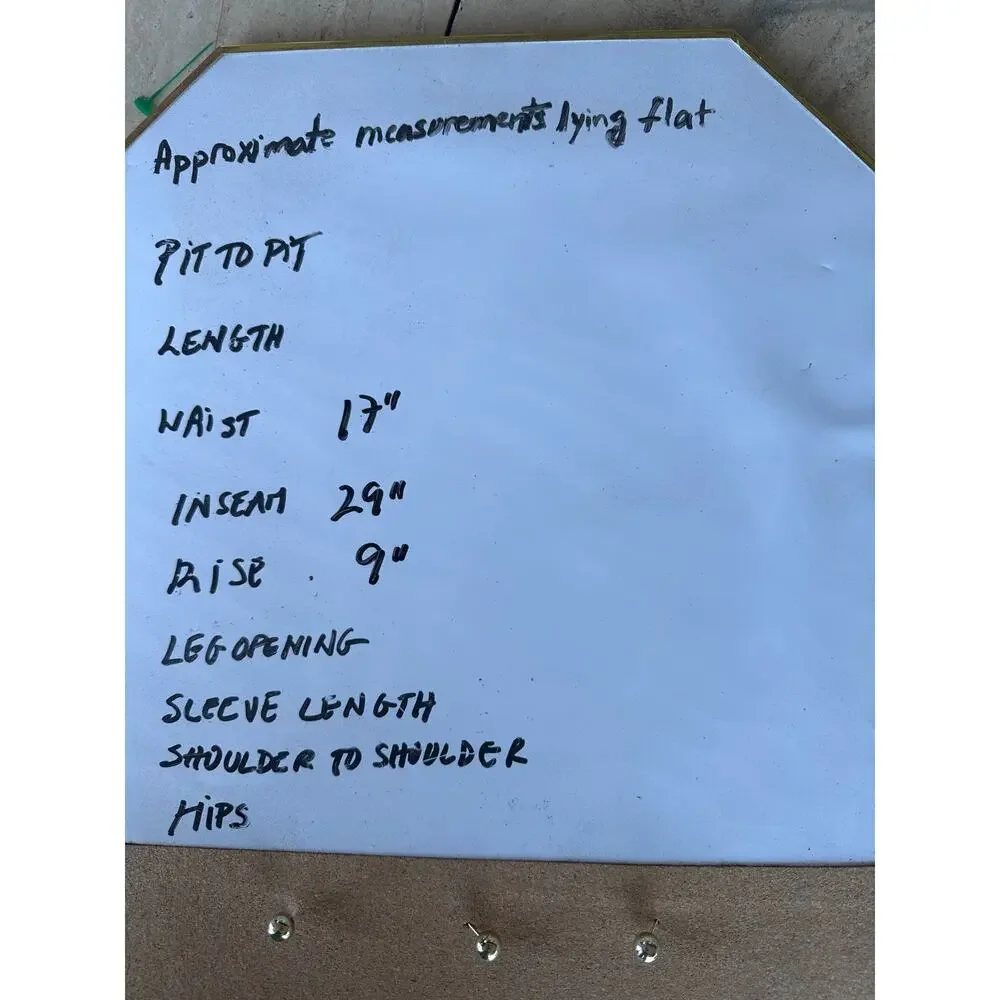 Approximate measurements lying flat
PIT TO PIT
LENGTH
WAIST 17"
INSEAM 29"
RISE 9"
LEG OPENING
SLEEVE LENGTH
SHOULDER TO SHOULDER
HIPS